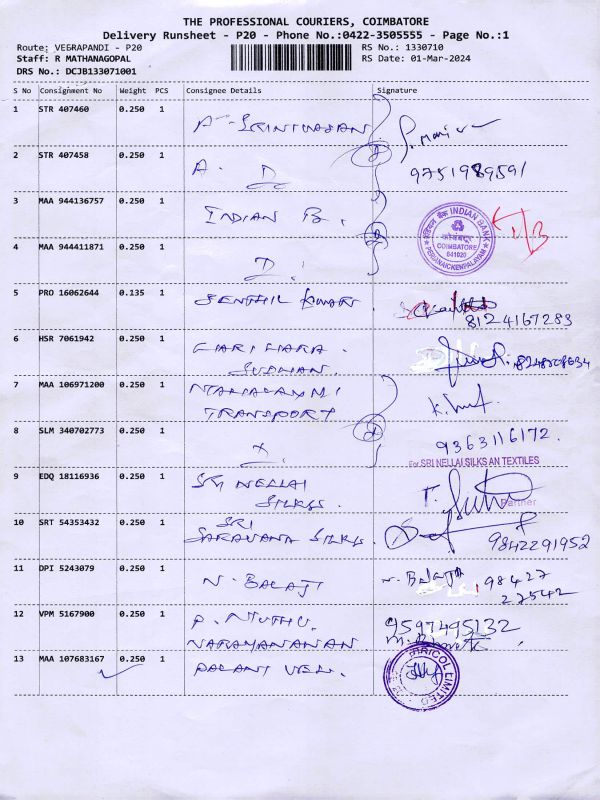 THE PROFESSIONAL COURIERS, COIMBATORE
Delivery Runsheet - P20 - Phone No.:0422-3505555 - Page No.:1
Route: VEERAPANDI - P20 RS No.: 1330710
Staff: R MATHANAGOPAL RS Date: 01-Mar-2024
DRS No.: DCJB133071001
S No Consignment No Weight PCS Consignee Details Signature
1 STR 407460 0.250 1 A. SRINIVASAN
2 STR 407458 0.250 1 A. D 9751989591
3 MAA 944136757 0.250 1 INDIAN B.
INDIAN BANK
COIMBATORE
641020
PERIANAICKENPALAYAM
4 MAA 944411871 0.250 1 D.
5 PRO 16062644 0.135 1 SENTHIL KUMAR
8124167283
6 HSR 7061942 0.250 1 HARI HARA
SUDHAN
7 MAA 106971200 0.250 1 MAHALAXMI
TRANSPORT
8 SLM 340702773 0.250 1 9363116172.
For SRI NELLAI SILKS AN TEXTILES
9 EDQ 18116936 0.250 1 SRI NELLAI
SILKS
Partner
10 SRT 54353432 0.250 1 SRI
SARAVANA SILKS 9842291952
11 DPI 5243079 0.250 1 N. BALAJI N. Balaji 98427
27542
12 VPM 5167900 0.250 1 P. MUTHU
NARAYANANAN
9597495132
13 MAA 107683167 0.250 1 PALANI VEL.
LIMITED